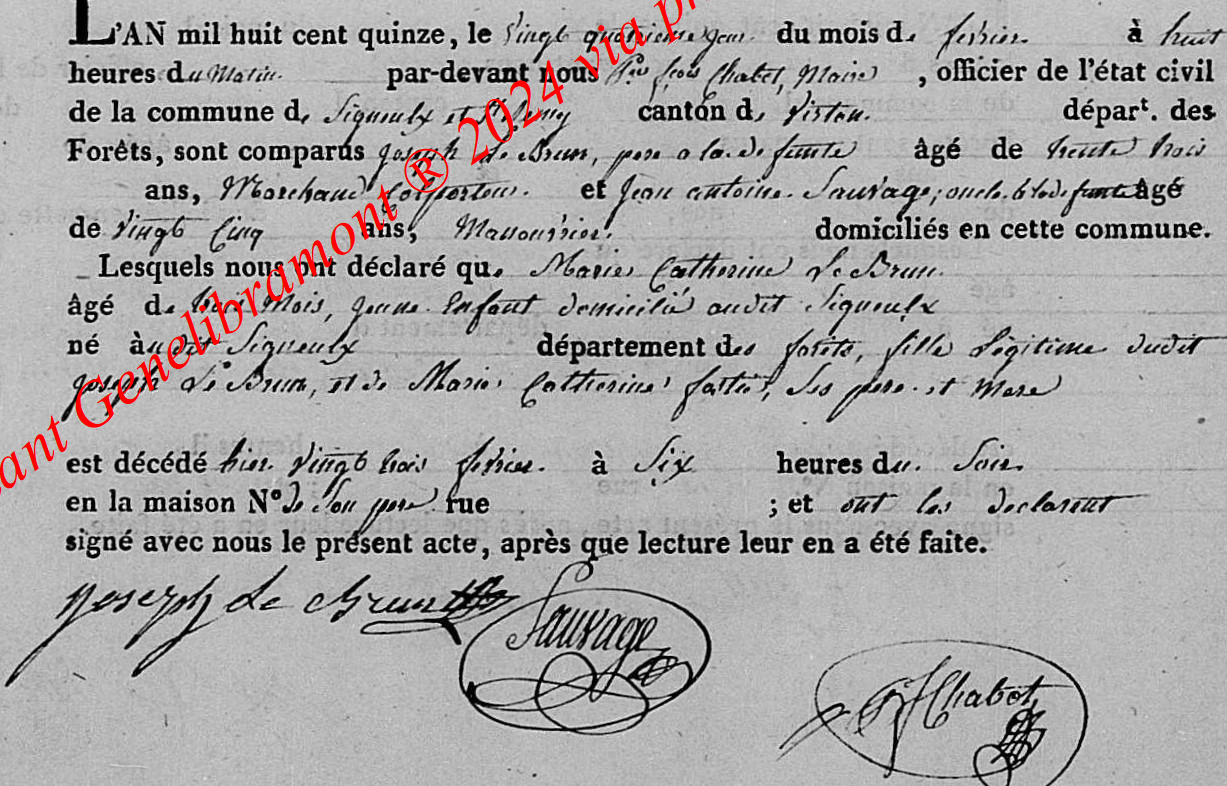 L'AN mil huit cent quinze, le vingt quatrieme jour du mois de fevrier à huit
heures du Matin par-devant nous françois Chabot, Maire, officier de l'état civil
de la commune de Signeulx et canton de Virton départ. des
Forêts, sont comparus Joseph Le Brun, pere a la defunte âgé de trente trois
ans, Marchand Colporteur et Jean antoine Sauvage, oncle a la defunte âgé
de vingt Cinq ans, domiciliés en cette commune.
Lesquels nous ont déclaré que Marie Catherine Le Brun
âgé de trois Mois, jeune Enfant domicilié audit Signeulx
né àudit Signeulx département des forêts fille Légitime dudit
Joseph Le Brun, et de Marie Catherine, ses pere et Mere
est décédé hier vingt trois fevrier à Six heures du Soir
en la maison N° de Son pere rue ; et ont les declarant
signé avec nous le présent acte, après que lecture leur en a été faite.
Joseph Le Brun
Sauvage
Chabot
ant Genelibramont ® 2024 via